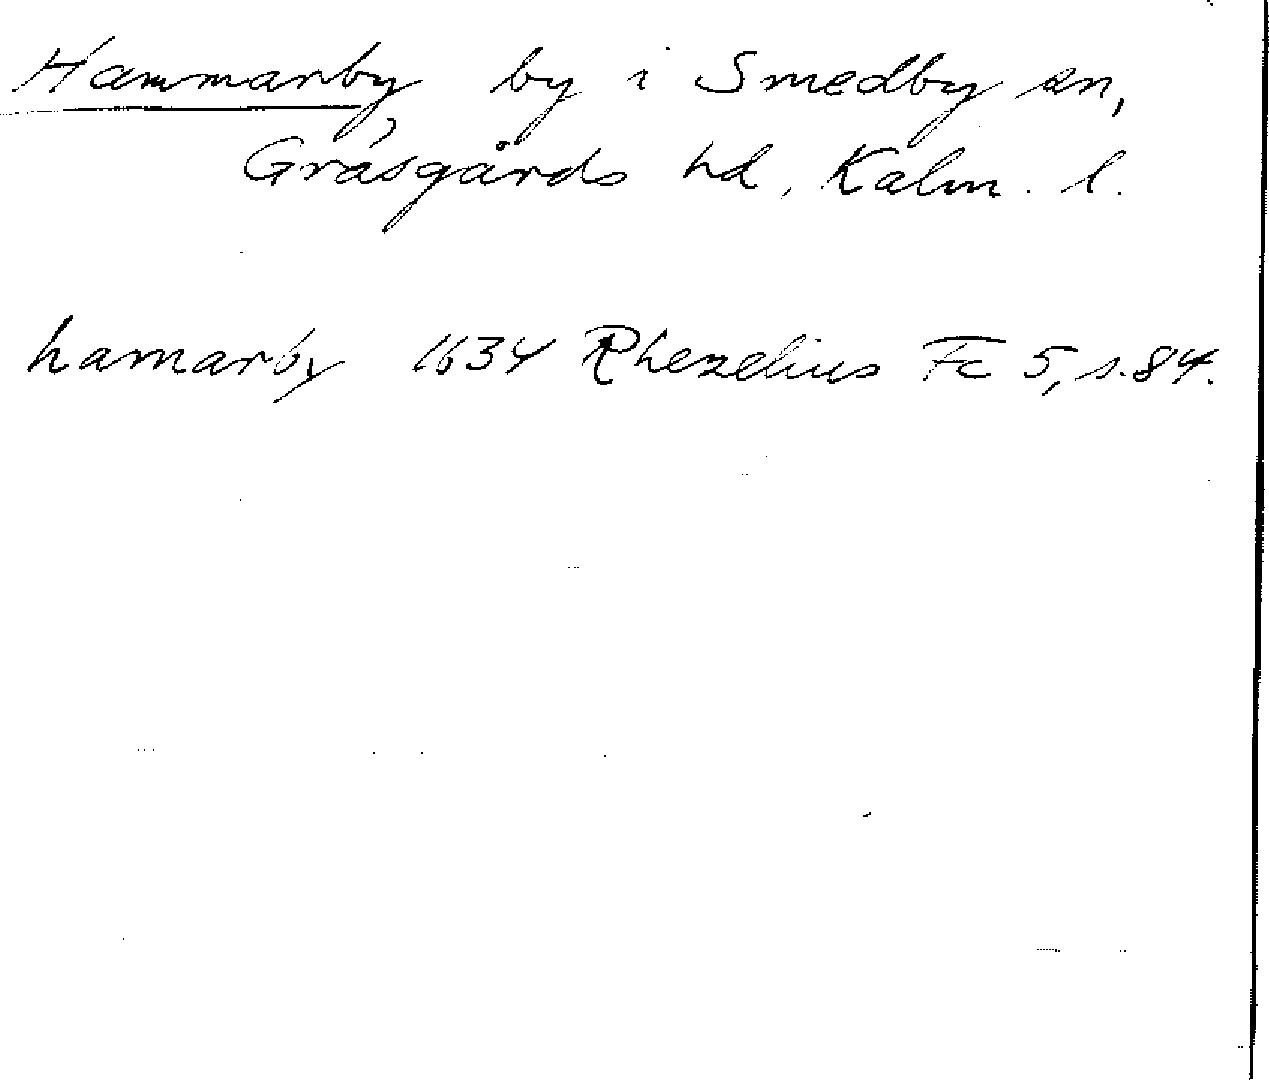 Hammarby, by i Smedby sn,
Gräsgårds hd, Kalm. l.
hamarby 1634 Rhezelius Fc 5, s. 84.